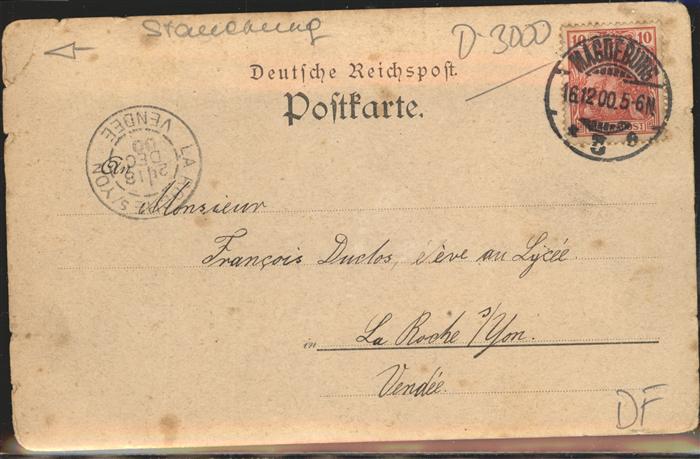 Stauchung
D-3000
10 10
MAGDEBURG
16.12.00.5-6N.
Deutsche Reichspost.
Postkarte.
LA ROCHE S/YON
18
DEC
00
VENDEE
An Monsieur
François Duclos, élève au Lycée
in La Roche s/Yon.
Vendée.
DF